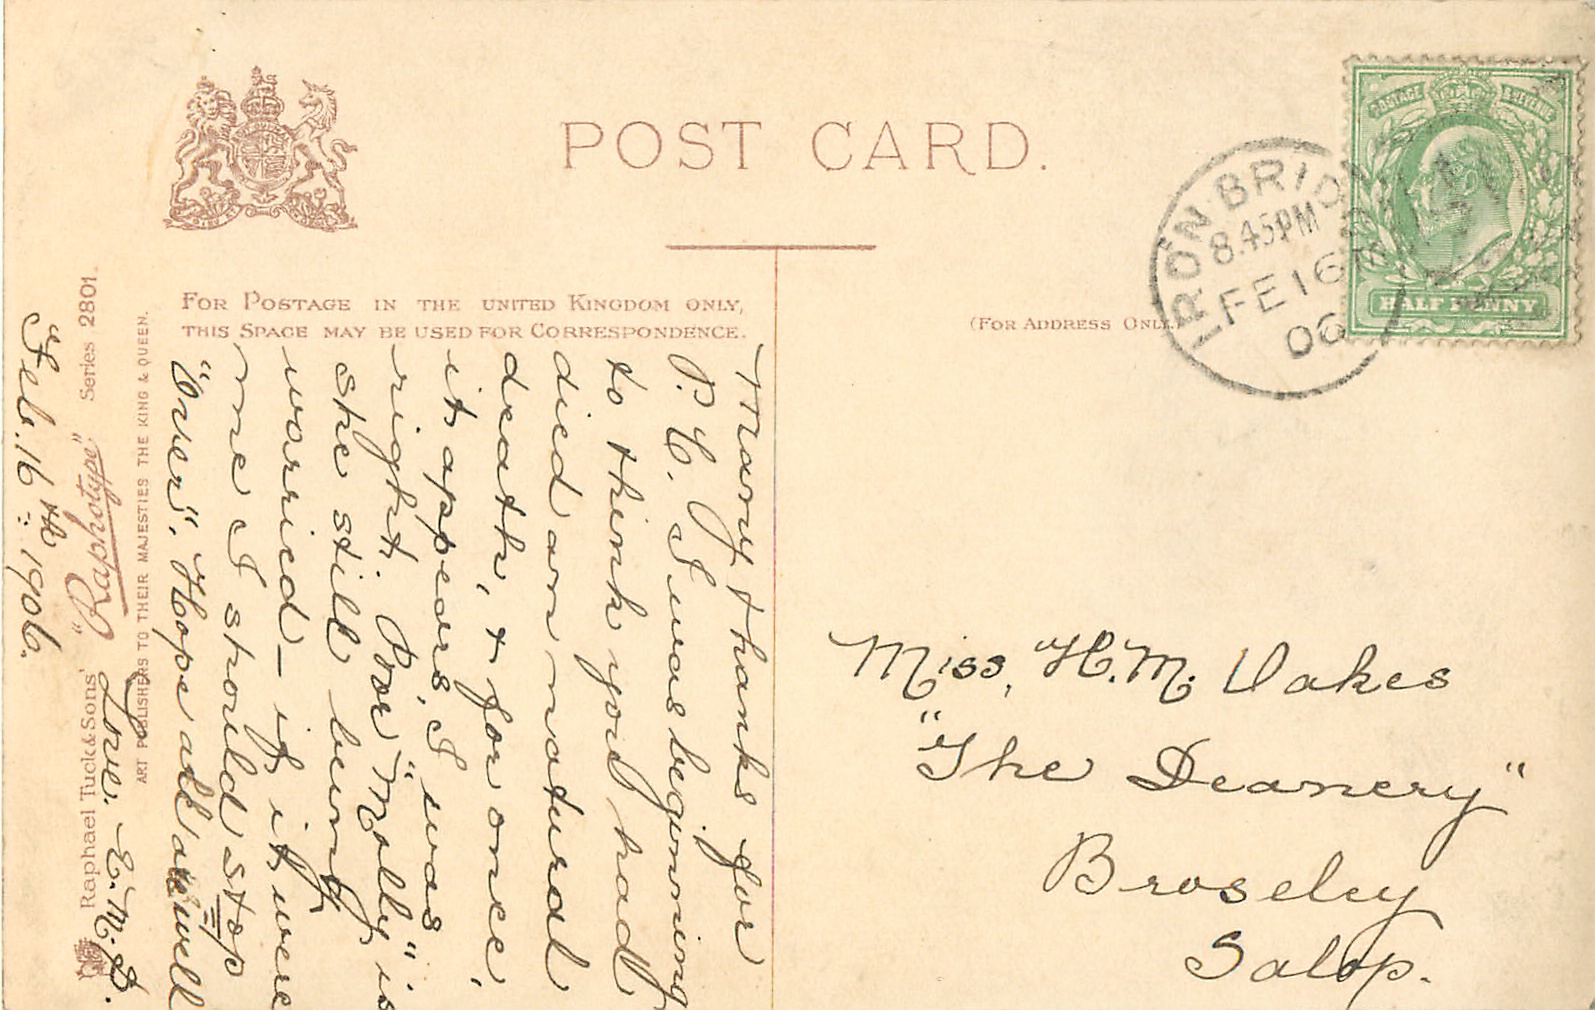 POST CARD.
FOR POSTAGE IN THE UNITED KINGDOM ONLY,
THIS SPACE MAY BE USED FOR CORRESPONDENCE.
(FOR ADDRESS ONLY.)
POSTAGE & REVENUE
HALF PENNY
IRONBRIDGE
8.45PM
FE 16
06
Many thanks for
P.C. I was beginning
to think you had
died an natural
death, & for once,
it appears, I was
right. Poor "Molly" is
she still bung
worried – if it were
me I should stop
"Over". Hope all are well
Love. E.M.D.
Feb. 16th: 1906.
Miss, H.M. Oakes
"The Deanery"
Broseley
Salop.
ART PUBLISHERS TO THEIR MAJESTIES THE KING & QUEEN.
Raphael Tuck & Sons' "Raphotype" Series 2801.